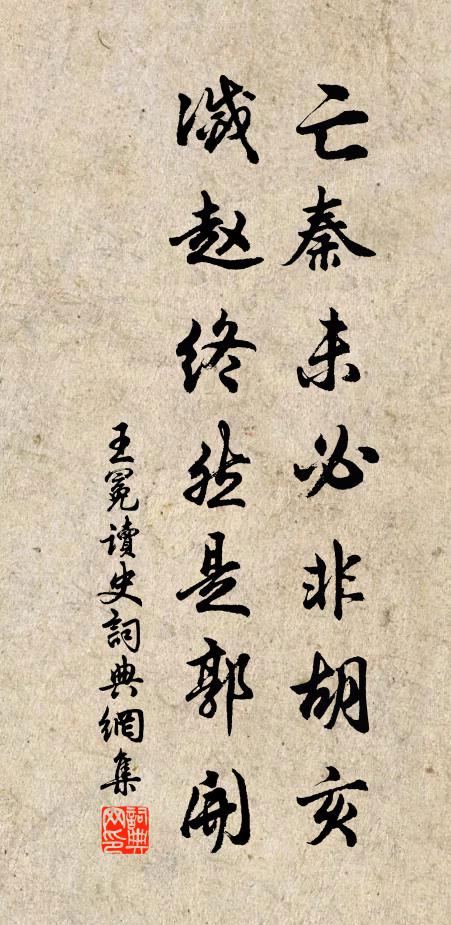 亡秦未必非胡亥
滅趙終然是郭開
王冕讀史詞典網集
詞典網印